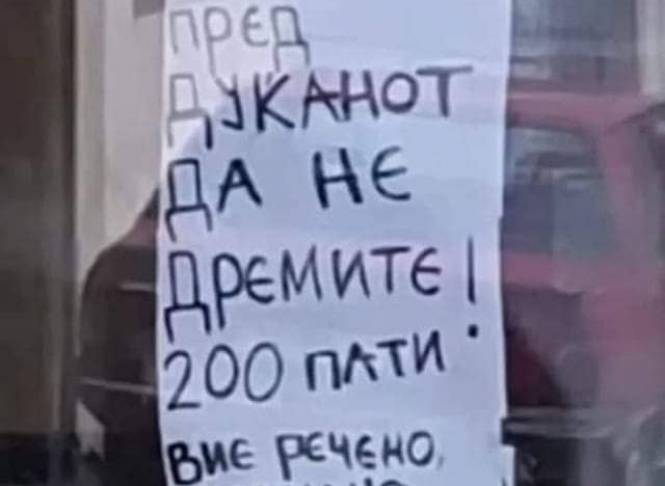 ПРЕД
ДУКАНОТ
ДА НЕ
ДРЕМИТЕ!
200 ПАТИ
ВИЕ РЕЧЕНО,